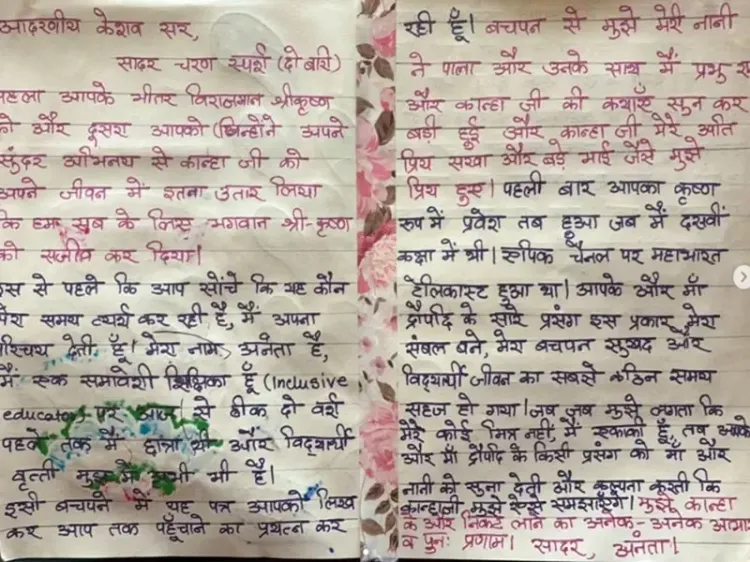 आदरणीय केशव सर,
सादर चरण स्पर्श (दो बारी)
पहला आपके भीतर विराजमान श्रीकृष्ण
को और दूसरा आपको (जिन्होंने अपने
सुंदर अभिनय से कान्हा जी को
अपने जीवन में इतना उतार लिया
कि हम सब के लिए भगवान श्री-कृष्ण
को सजीव कर दिया।
इस से पहले कि आप सोंचे कि यह कौन
मेरा समय व्यर्थ कर रही है, मैं अपना
परिचय देती हूँ। मेरा नाम अनंता है,
मैं एक समावेशी शिक्षिका हूँ (Inclusive
educator) पर आज से ठीक दो वर्ष
पहले तक मैं छात्रा थी और विद्यार्थी
वृत्ती मुझ में अभी भी है।
इसी बचपने में यह पत्र आपको लिख
कर आप तक पहूँचाने का प्रयत्न कर
रही हूँ। बचपन से मुझे मेरी नानी
ने पाला और उनके साथ मैं प्रभु
और कान्हा जी की कथाएँ सुन कर
बड़ी हुई और कान्हा जी मेरे अति
प्रिय सखा और बड़े भाई जैसे मुझे
प्रिय हुए। पहली बार आपका कृष्ण
रूप में प्रवेश तब हुआ जब मैं दसवीं
कक्षा में थी। एपिक चैनल पर महाभारत
टेलिकास्ट हुआ था। आपके और माँ
द्रौपदि के सारे प्रसंग इस प्रकार मेरा
संबल बने, मेरा बचपन सुखद और
विद्यार्थी जीवन का सबसे कठिन समय
सहज हो गया। जब जब मुझे लगता कि
मेरे कोई मित्र नहीं, मैं एकाकी हूँ, तब आपके
और माँ द्रौपदि के किसी प्रसंग को माँ और
नानी को सुना देती और कल्पना करती कि
कान्हाजी मुझे ऐसे समझाएँगे। मुझे कान्हा
के और निकट लाने का अनेक-अनेक आभार
व पुनः प्रणाम। सादर, अनंता।